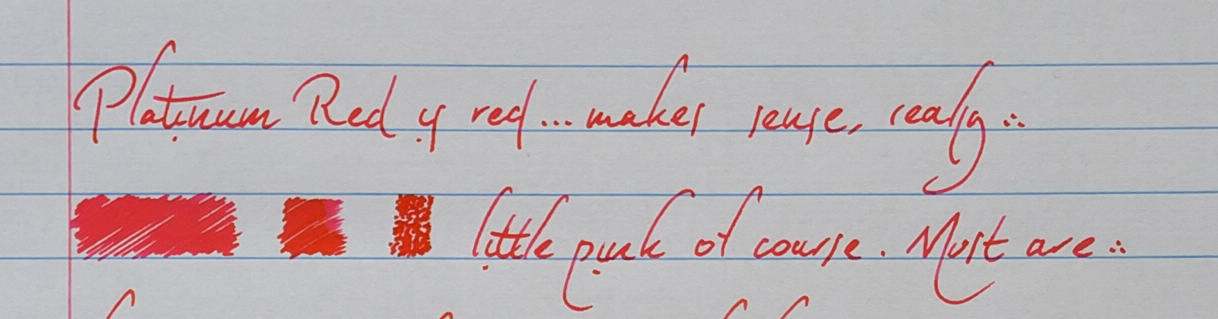 Platinum Red is red... makes sense, really...
little pink of course. Most are...